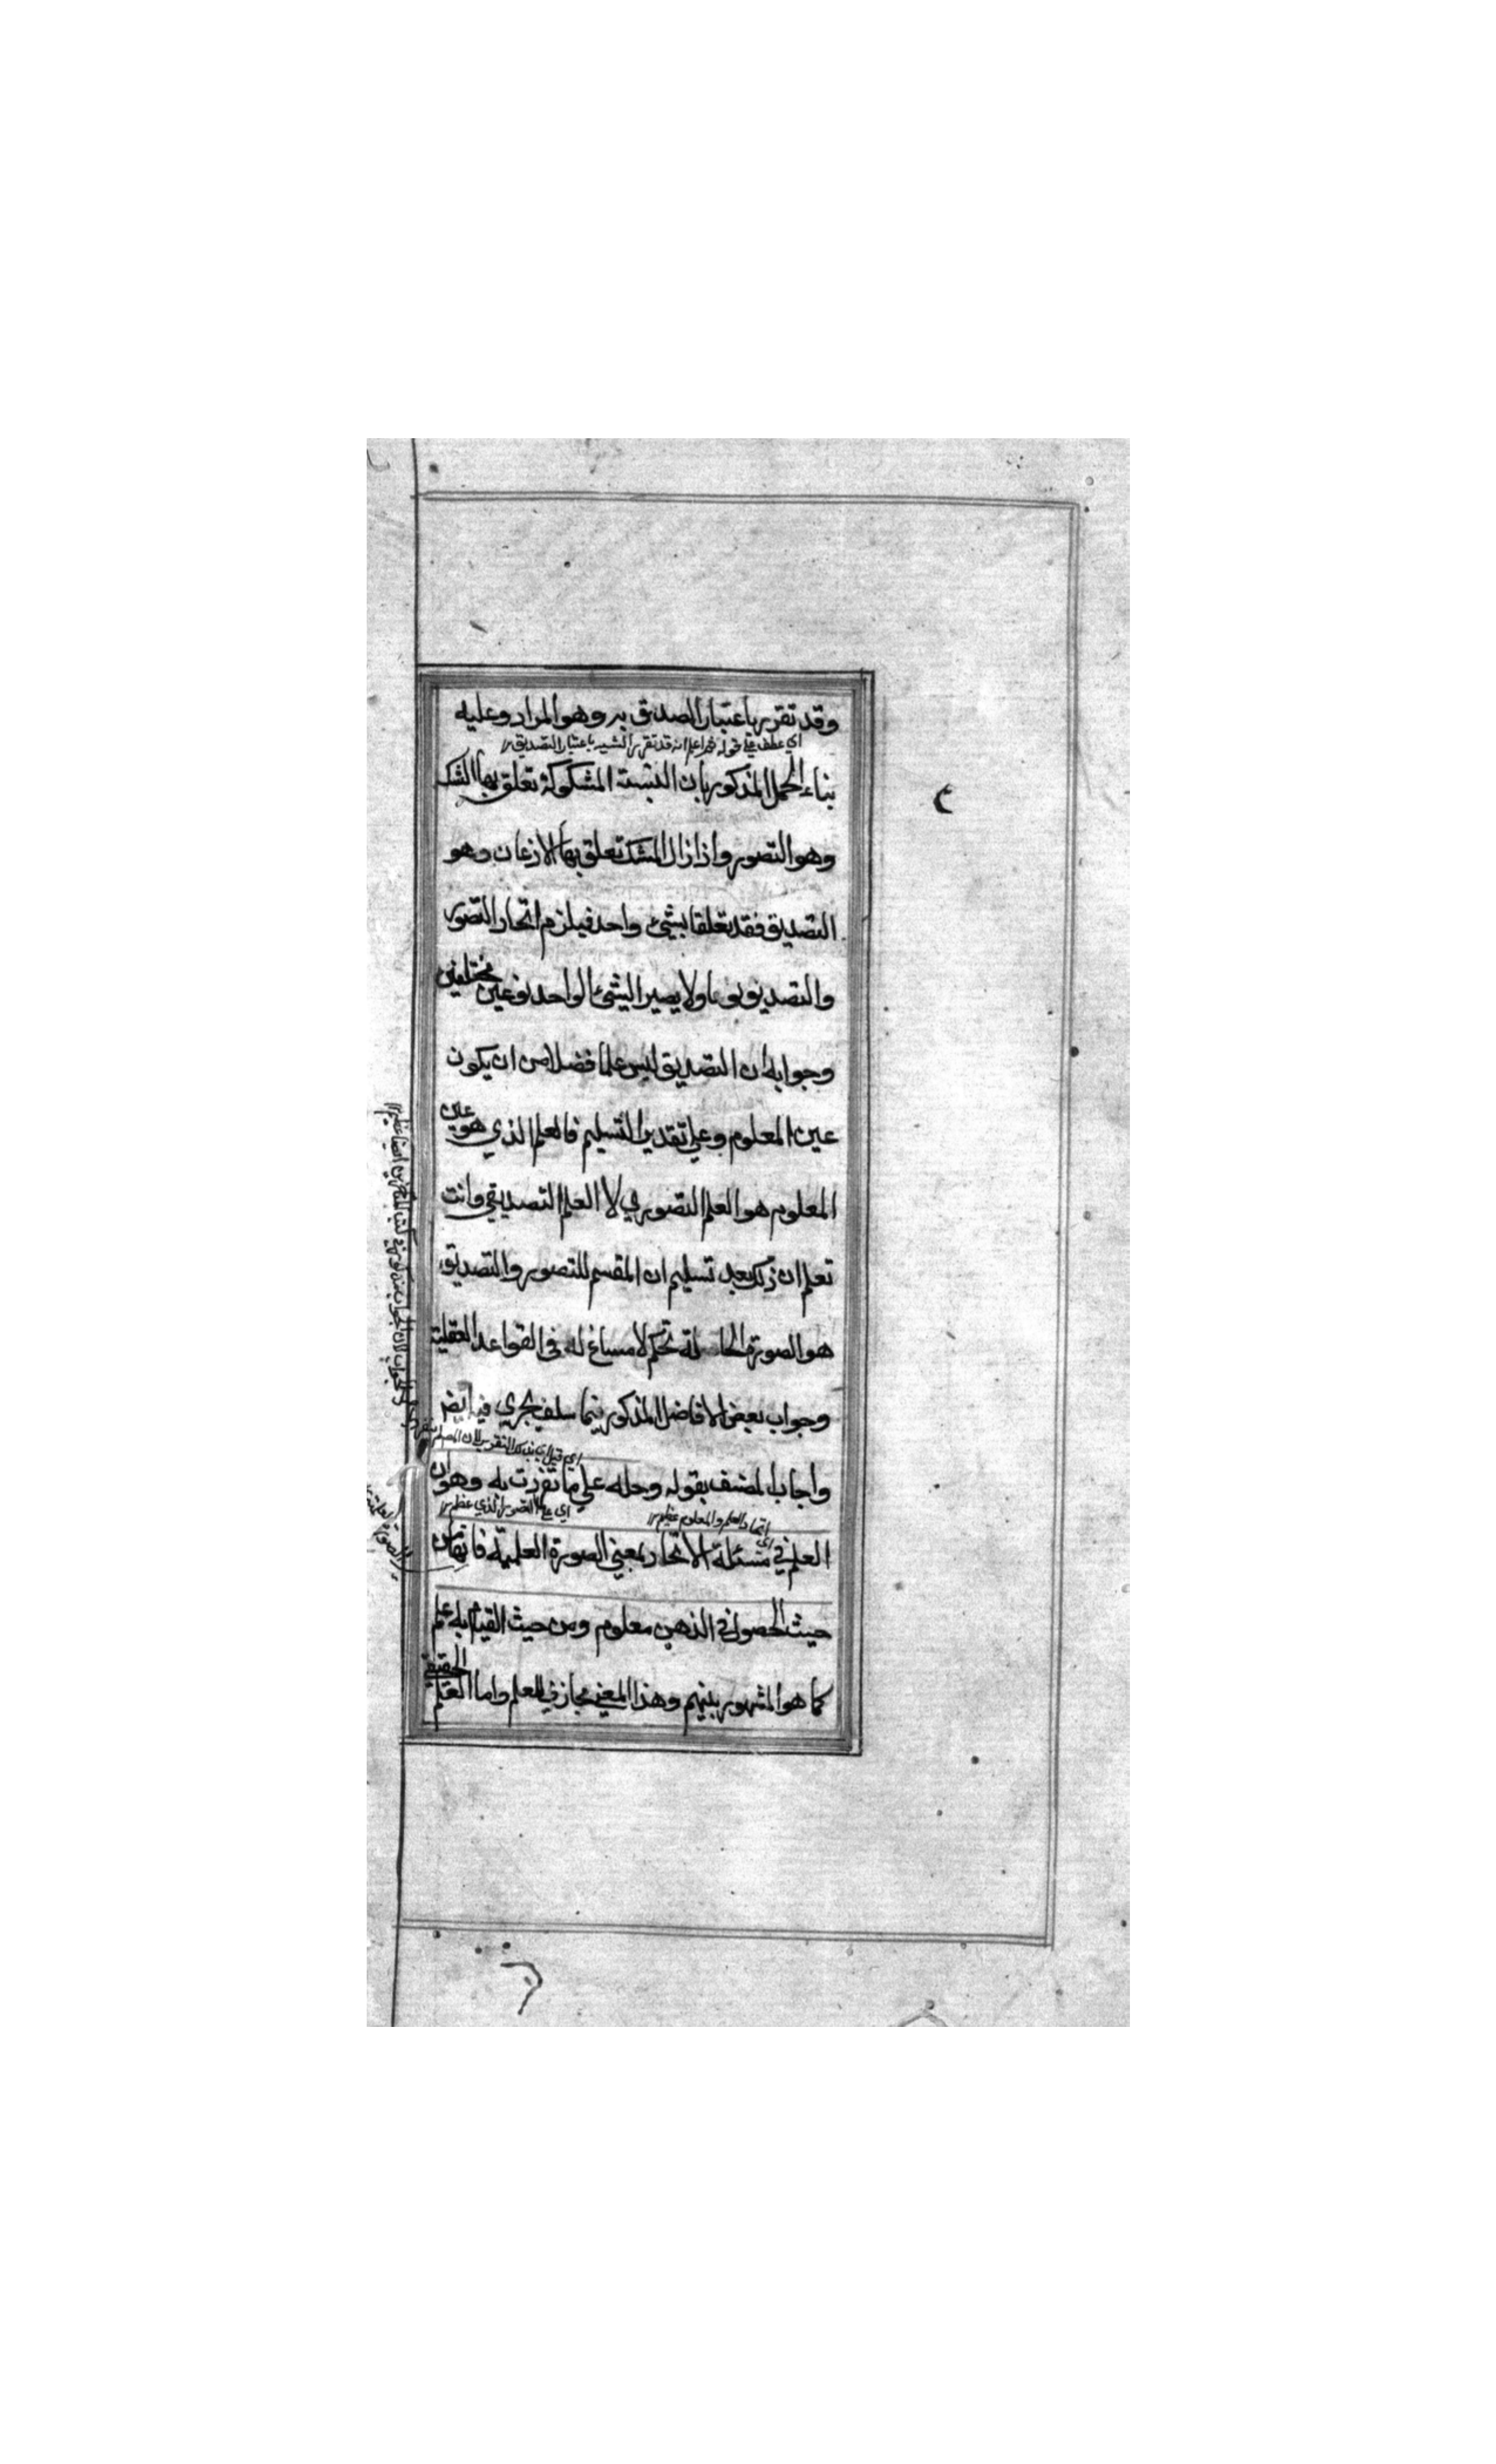 وقد تقرر باعتبار التصديق به وهو المراد وعليه
اي عطف علي قوله ثم اعلم انه قد تقرر الشبهة باعتبار التصديق
بناء الحمل المذكور بان النسبة المشكوكة تعلق بها الشك
وهو التصور واذا زال الشك تعلق بها الاذعان وهو
التصديق فقد تعلقا بشيئ واحد فيلزم اتحاد التصور
والتصديق نوعا ولا يصير الشيئ الواحد نوعين مختلفين
وجوابه ان التصديق ليس علما فضلا من ان يكون
عين المعلوم وعلي تقدير التسليم فالعلم الذي هو عين
المعلوم هو العلم التصوري لا العلم التصديقي وانت
تعلم ان ذلك بعد تسليم ان المقسم للتصور والتصديق
هو الصورة الحاصلة تحكم لا مساغ له في القواعد العقلية
وجواب بعض الافاضل المذكور فيما سلف يجري فيه ايضا
واجاب المصنف بقوله وحله علي ما تفردت به وهو ان
اتحاد العلم والمعلوم عظيم
العلم في مسئلة الاتحاد بمعني الصورة العلمية فانها من
حيث الحصول في الذهن معلوم ومن حيث القيام به علم
كما هو المشهور بينهم وهذا المعني مجاز في العلم واما العلم الحقيقي